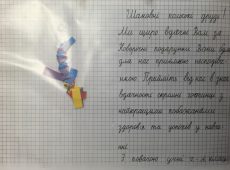 Шановні колеги друзі!
Ми щиро вдячні Вам за
Новорічні подарунки. Вони були
для нас приємною несподіван
кою. Прийміть від нас в знак
вдячності скромні гостинці з
найкращими побажаннями
здоров'я та успіхів у навчан
ні.
З повагою учні 2-А класу